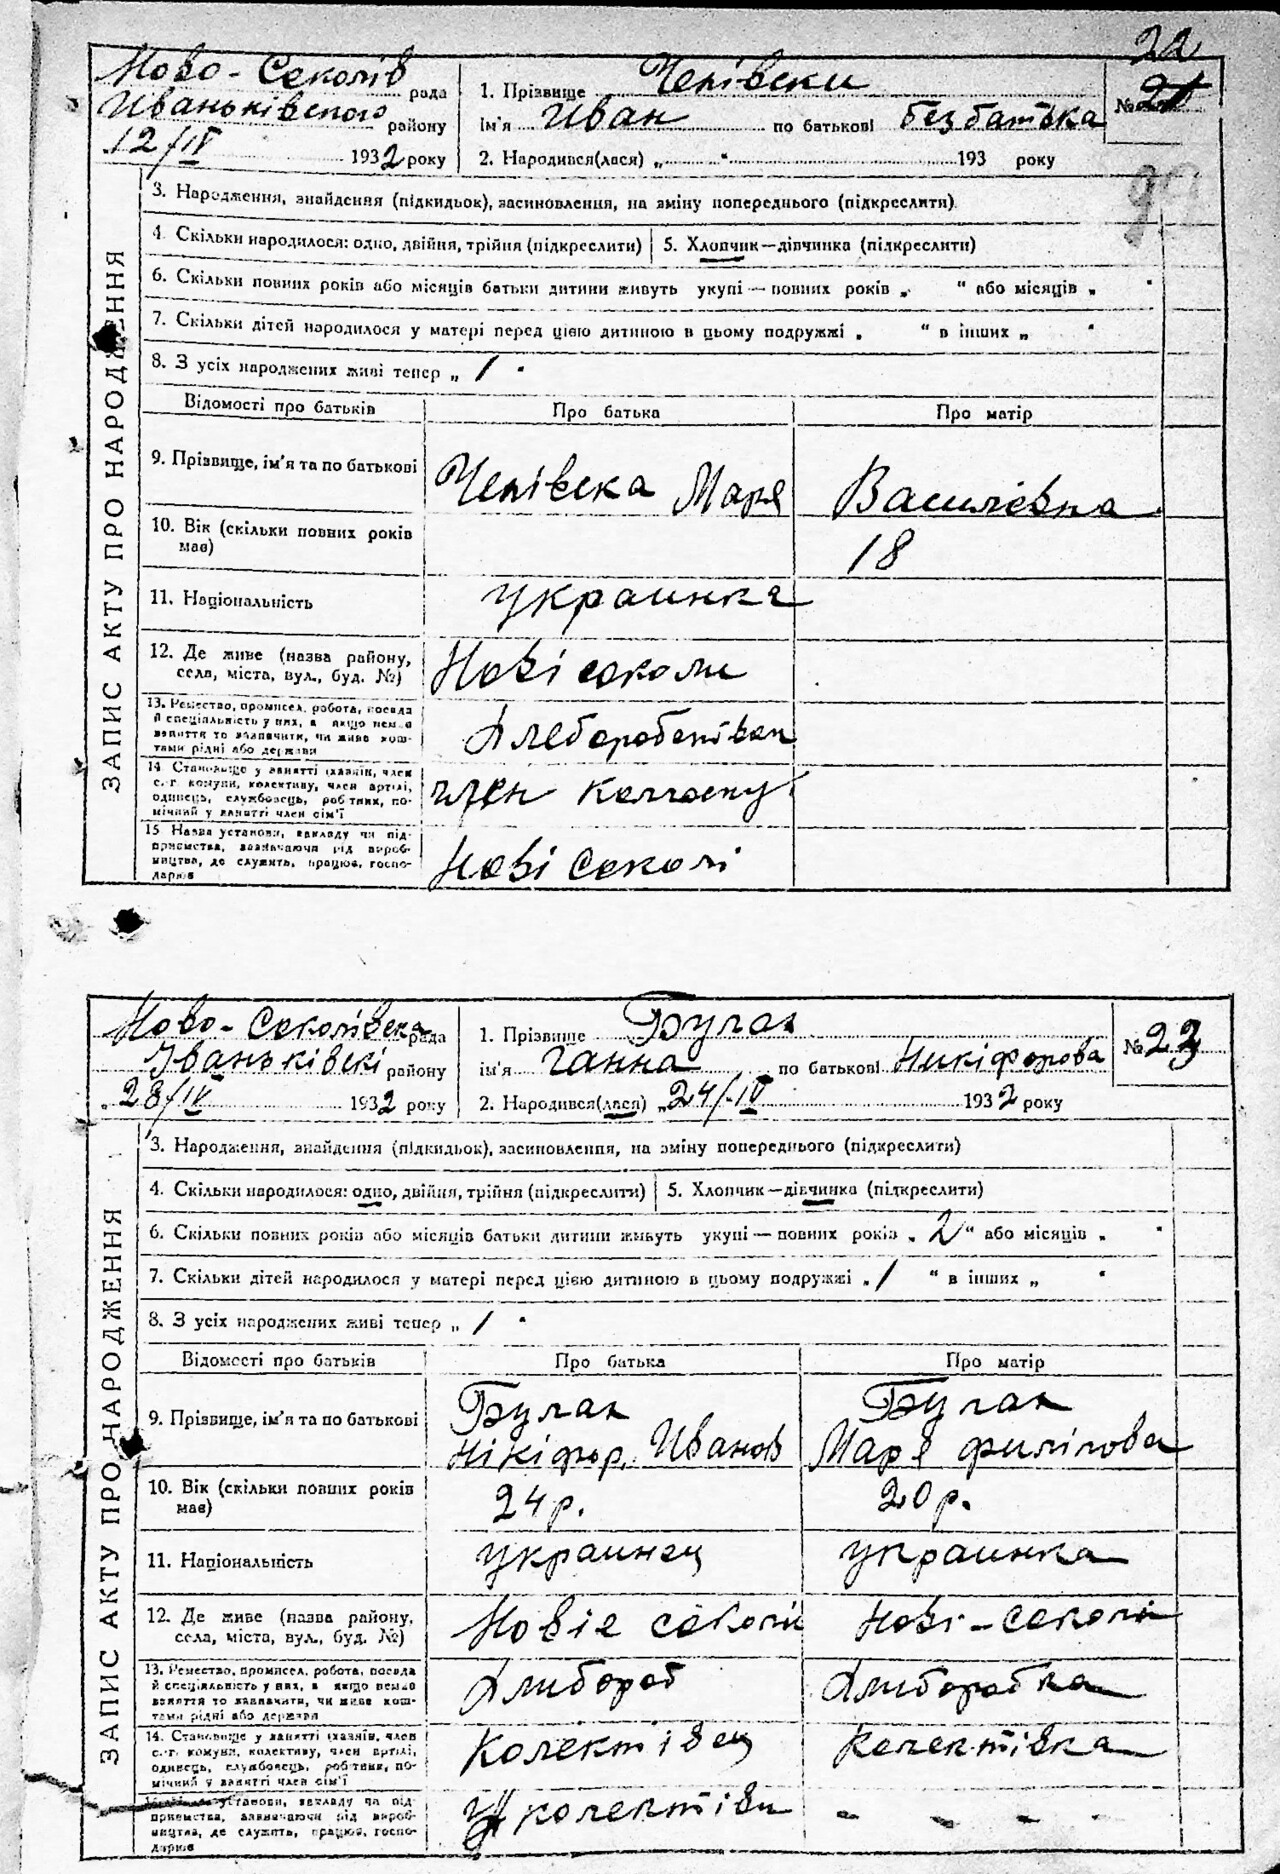 22
Ново-Соколів рада
Иваньківского району
12/IV 1932 року
1. Прізвище Чепівски
ім'я Иван по батькові без батька
2. Народився(лася) „ “ 193 року
№ 21
ЗАПИС АКТУ ПРО НАРОДЖЕННЯ
3. Народження, знайдення (підкидьок), засиновлення, на зміну попереднього (підкреслити)
4. Скільки народилося: одно, двійня, трійня (підкреслити)
5. Хлопчик—дівчинка (підкреслити)
6. Скільки повних років або місяців батьки дитини живуть укупі — повних років „ “ або місяців „ “
7. Скільки дітей народилося у матері перед цією дитиною в цьому подружжі „ “ в інших „ “
8. З усіх народжених живі тепер „ 1 “
Відомості про батьків Про батька Про матір
9. Прізвище, ім'я та по батькові
Чепівска Маря Василівна
10. Вік (скільки повних років
має)
18
11. Національність
украинка
12. Де живе (назва району,
села, міста, вул., буд. №)
Нові соколи
13. Ремество, промисел, робота, посада
й спеціяльність у них, а якщо немає
заняття то зазначити, чи живе кош-
тами рідні або держави
14. Становище у занятті (хазяїн, член
с.-г. комуни, колективу, член артілі,
одинець, службовець, робітник, по-
мічний у занятті член сім'ї
член колгоспу
15. Назва установи, закладу чи під-
приємства, зазначаючи рід вироб-
ництва, де служить, працює, госпо-
дарює
Нові Соколі
Ново-Соколівска рада
Іваньківскі району
28/IV 1932 року
1. Прізвище Булах
ім'я Ганна по батькові Никіфорова
2. Народився(лася) „24/-IV 1932 року
№ 23
ЗАПИС АКТУ ПРО НАРОДЖЕННЯ
3. Народження, знайдення (підкидьок), засиновлення, на зміну попереднього (підкреслити)
4. Скільки народилося: одно, двійня, трійня (підкреслити)
5. Хлопчик—дівчинка (підкреслити)
6. Скільки повних років або місяців батьки дитини живуть укупі — повних років „ 2 “ або місяців „ “
7. Скільки дітей народилося у матері перед цією дитиною в цьому подружжі „ 1 “ в інших „ “
8. З усіх народжених живі тепер „ 1 “
Відомості про батьків Про батька Про матір
9. Прізвище, ім'я та по батькові
Булах Булах
Нікіфор. Иванов Маря филіпова
10. Вік (скільки повних років
має)
24 р. 20 р.
11. Національність
украинец украинка
12. Де живе (назва району,
села, міста, вул., буд. №)
Новіе соколи Нові-соколи
13. Ремество, промисел, робота, посада
й спеціяльність у них, а якщо немає
заняття то зазначити, чи живе кош-
тами рідні або держави
Хлибороб Хлиборобка
14. Становище у занятті (хазяїн, член
с.-г. комуни, колективу, член артілі,
одинець, службовець, робітник, по-
мічний у занятті член сім'ї
Колектівец Колектівка
установи, закладу чи під-
приємства, зазначаючи рід вироб-
ництва, де служить, працює, госпо-
дарює
у колектіви - - - -